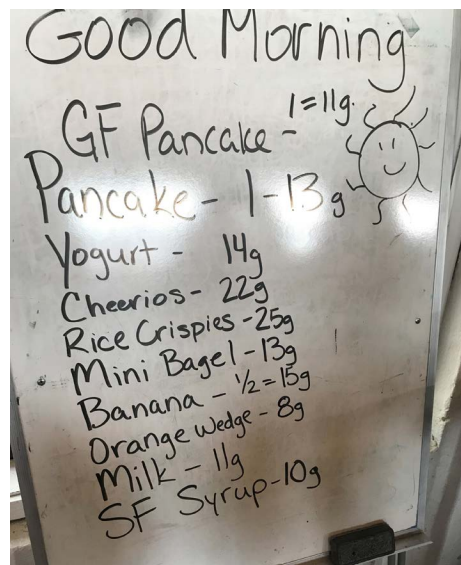 Good Morning
GF Pancake - 1=11g.
Pancake - 1-13g
Yogurt - 14g
Cheerios - 22g
Rice Crispies - 25g
Mini Bagel - 13g
Banana - 1/2 = 15g
Orange wedge - 8g
Milk - 11g
SF Syrup - 10g